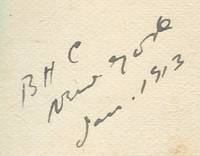 BHC
New York
Jan. 1913